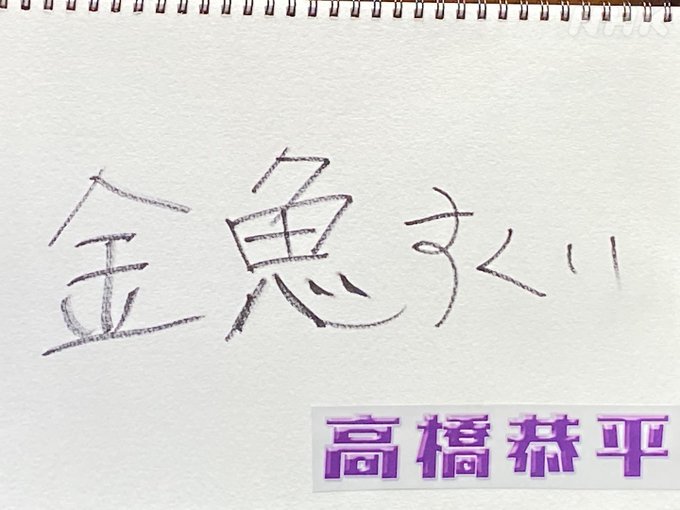 NHK
金魚すくい
高橋恭平